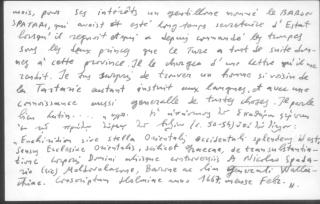 mois, pour ses intérêts un gentilhomme nommé le BARON
SPATARI, qui avoist esté long-temps secretaire d'Estat
lorsqu'il regnoit et qui a depuis commandé les troupes
sous les deux princes que le Turc a tout de suite don-
nes à cette province. Je le chargea d'une lettre qu'il me
rendit. Je fus surpris de trouver un homme si voisin de
la Tartarie autant instruit aux langues, et avec une
connoissance aussi generalle de toutes choses. Il parle
bien latin....
(σ. 50-54)
"Enchiridion sive stella Orientalis occidentali splendens id est,
sensus Ecclesiae Orientalis, scilicet graecae, de transsubstantia-
tione corporis Domini aliisque controversiis A Nicolao Spada-
rio Moldavolaccone, Barone ac olim generali Walla-
chiae. Conscriptum Holmiae anno 1667, mense Febr.".